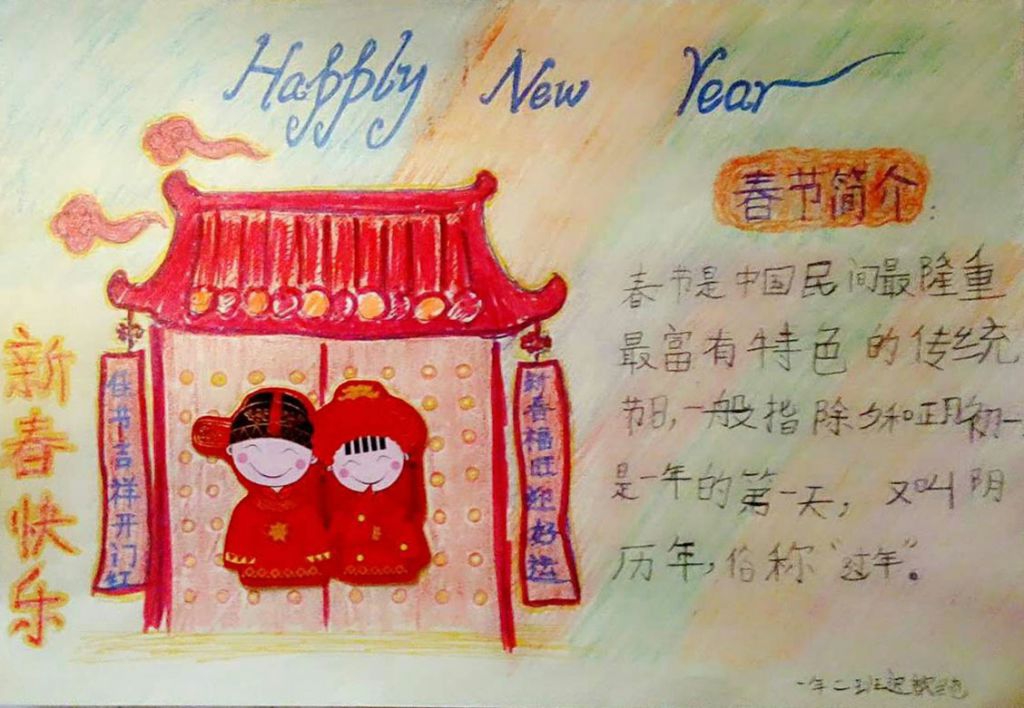 Happly New Year
春节简介:
春节是中国民间最隆重
最富有特色的传统
节日,一般指除夕和正月初一
是一年的第一天,又叫阴
历年,俗称“过年”。
新春快乐
佳节吉祥开门红
新春福旺迎好运
一年二班